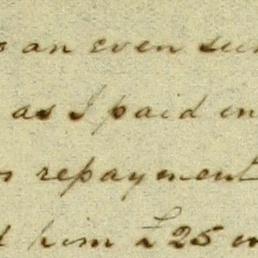 an even
as I paid
repayment
him £25